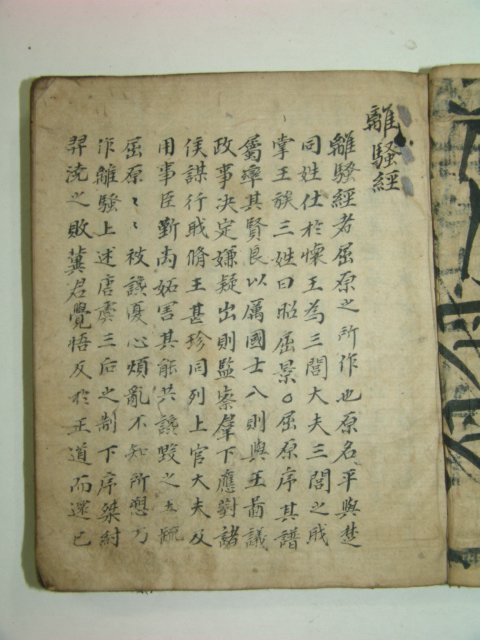 離騷經
離騷經者屈原之所作也原名平與楚
同姓仕於懷王為三閭大夫三閭之职
掌王族三姓曰昭屈景。屈原序其譜
屬率其賢良以厲國士入則與王啚議
政事决定嫌疑出則監察羣下應對諸
侯謀行职脩王甚珍同列上官大夫及
用事臣靳尚妬害其能共譖毁之王疏
屈原〻〻被讒憂心煩亂不知所愬乃
作離騷上述唐虞三后之制下序桀紂
羿澆之敗冀君覺悟反於正道而還己